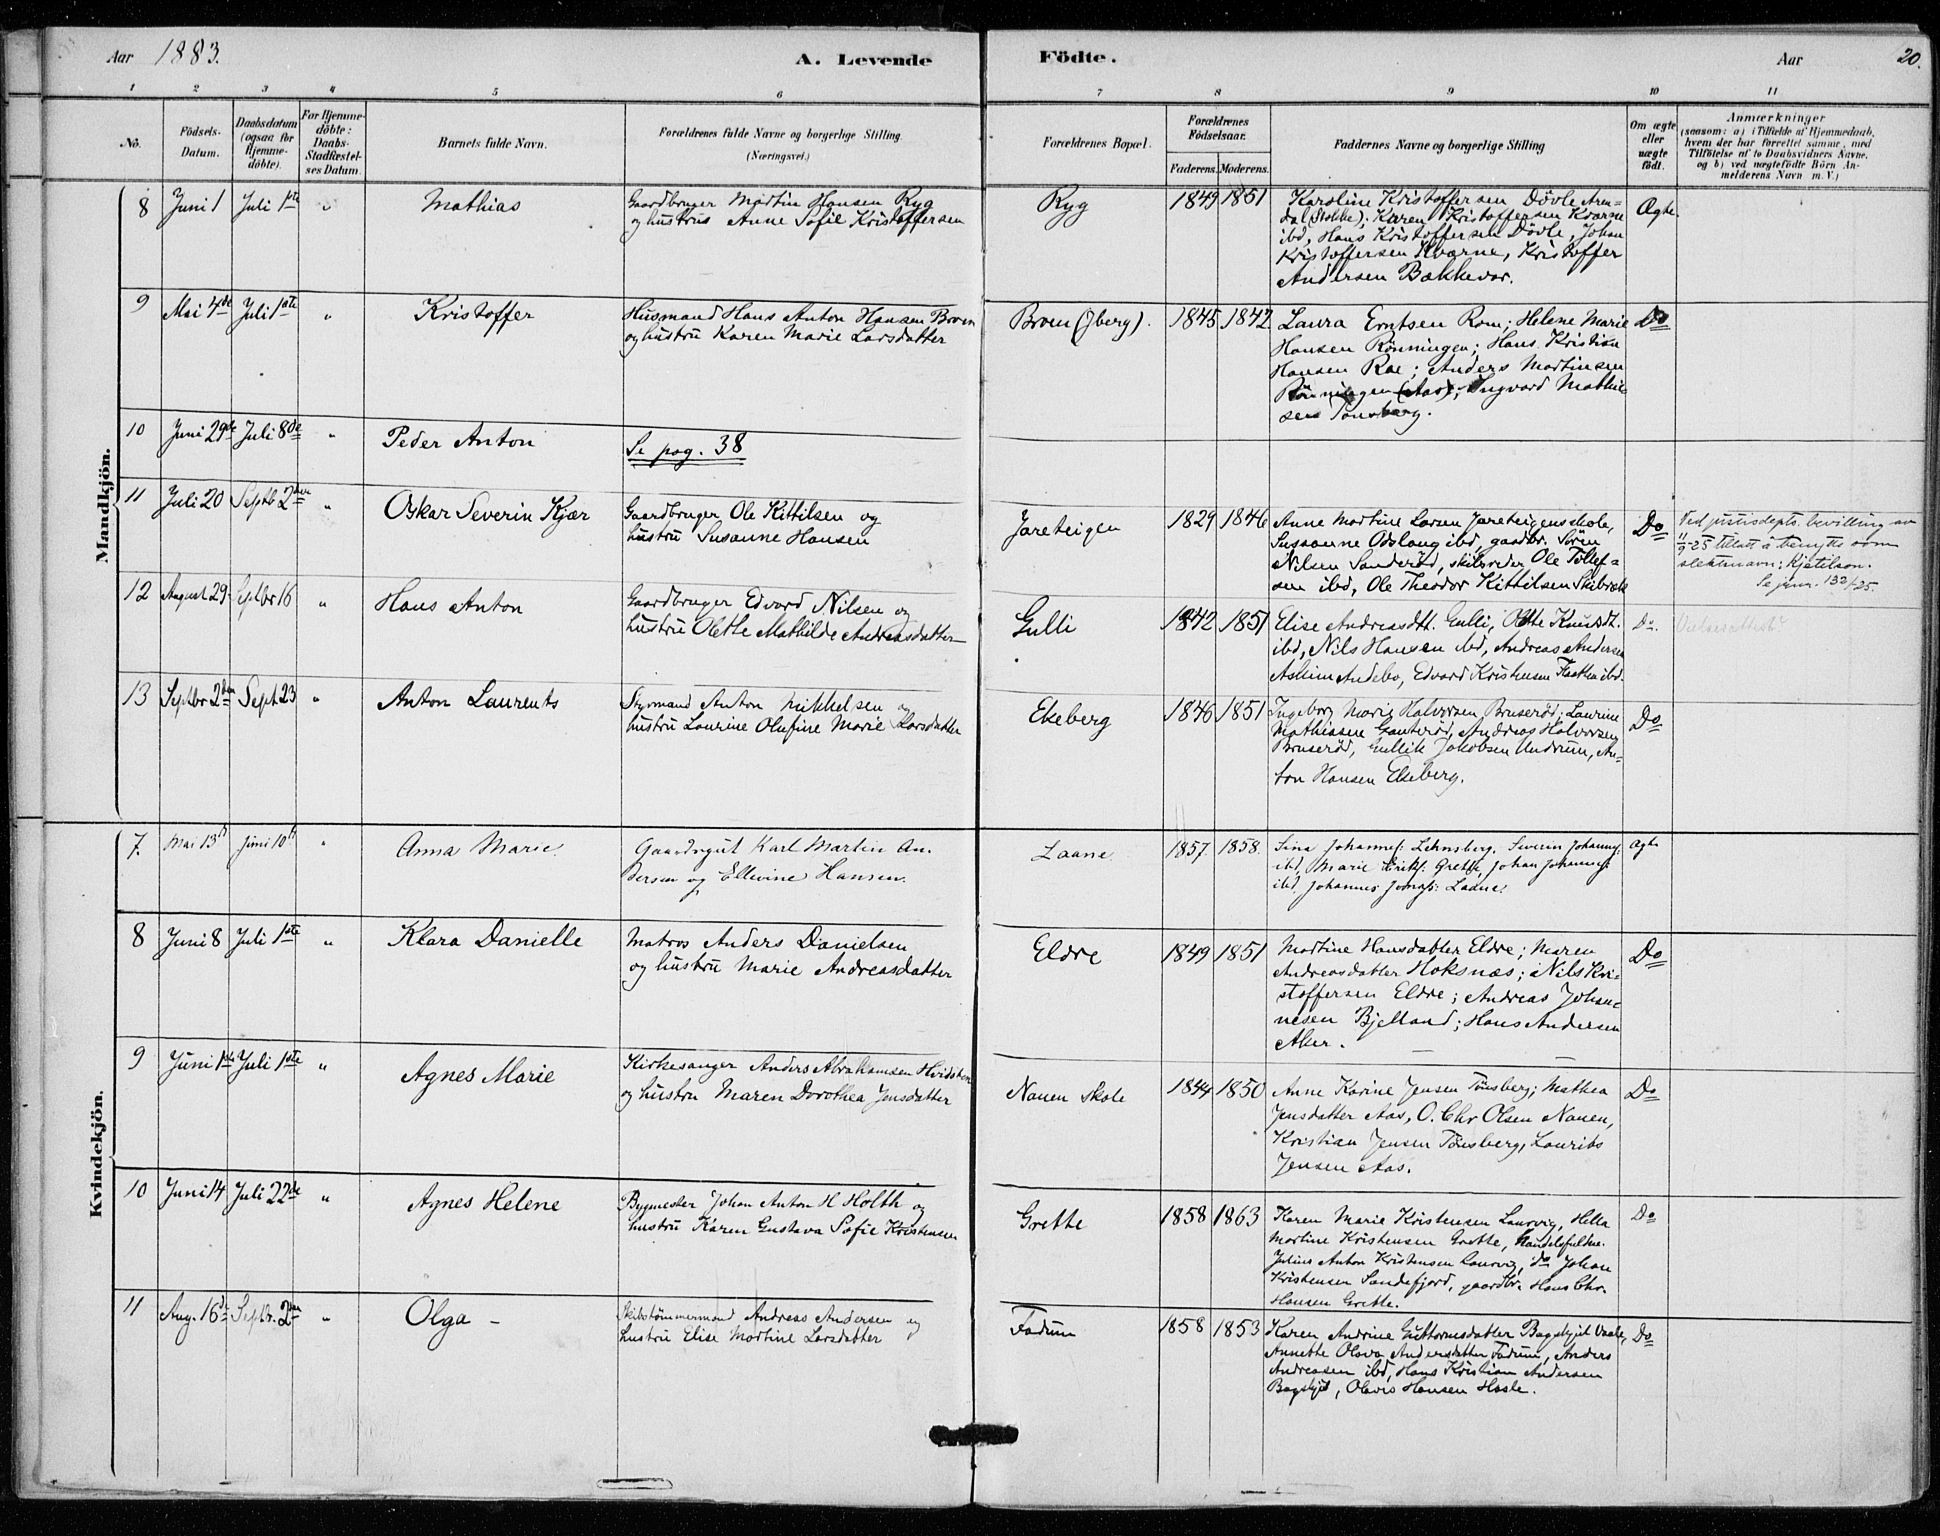 Aar 1883.
A. Levende Födte.
Aar
20.
1 2 3 4 5 6 7 8 9 10 11
No.
Födsels-Datum.
Daabsdatum (ogsaa for Hjemme-döbte).
For Hjemme-döbte: Daabs-Stadfæstel-ses Datum.
Barnets fulde Navn.
Forældrenes fulde Navne og borgerlige Stilling. (Næringsvei.)
Forældrenes Bopæl.
Forældrenes Födselsaar.
Faderens. Moderens.
Faddernes Navne og borgerlige Stilling
Om ægte eller uægte födt.
Anmærkninger
(saasom: a) i Tilfælde af Hjemmedaab,
hvem der har forrettet samme, med
Tilföielse af to Daabsvidners Navne,
og b) ved uægtefödte Börn An-
melderens Navn m. V.)
Mandkjön.
8 Juni 1 Juli 1ste " Mathias
Gaardbruger Martin Hansen Ryg
og hustrus Anne Sofie Kristoffersen
Ryg 1849 1851
Karoline Kristoffersen Dövle Aren-
dal (Stokke); Karen Kristoffersen Kværne
ibd, Hans Kristoffersen Dövle, Johan
Kristoffersen Kværne, Kristoffer
Andersen Bækkevar.
Ægte.
9 Mai 4de Juli 1ste " Kristoffer
Husmand Hans Anton Hansen Broen
og hustru Karen Marie Larsdatter
Broen (Jberg). 1845 1842
Laura Erntsen Rom; Helene Marie
Hansen Rönningen; Hans Kristian
Hansen Roe; Anders Martinsen
Rönningen (Aas); Ingvard Mathie
sen Tönsberg.
Do
10 Juni 29de Juli 8de " Peder Anton
Se pag. 38
11 Juli 20 Septb 2den " Oskar Severin Kjær
Gaardbruger Ole Kittilsen og
hustru Susanne Hansen
Jareteigen 1829 1846
Anne Martine Larsen Jareteigen skole,
Susanne Odslaug ibd, gaardbr. Sören
Nilsen Sanderöd, skibsreder Ole Tollef-
sen ibd, Ole Theodor Kittilsen Skibræk
Do
Ved justisdepts. bevilling av
11/9-25 tillatt å benytte som
slektsnavn: Kjetilson.
Se jurn. 132/25.
12 August 29 Septbr 16 " Hans Anton
Gaardbruger Edvard Nilsen og
hustru Olette Mathilde Andreasdatter
Gulli 1842 1851
Elise Andreasdtt. Gulli, Olette Knutsdt.
ibd, Nils Hansen ibd, Andreas Andersen
Askim Andebo, Edvard Kristensen Flaatten ibd.
Do.
13 Septbr 2den Sept 23 " Anton Laurents
Styrmand Anton Mikkelsen og
hustru Laurine Olufine Marie Larsdatter
Ekeberg 1846 1851
Ingeborg Marie Halvorsen Bruseröd; Laurine
Mathiasen Ganteröd, Andreas Halvorsen
Bruseröd, Gullik Jakobsen Undrum, An-
ton Hansen Ekeberg.
Do
Kvindekjön.
7. Mai 13de Juni 10de " Anna Marie
Gaardsgut Karl Martin An-
dersen og Ellevine Hansen.
Laane 1857. 1858.
Sina Johannes: Lehnsberg, Severin Johannes:
ibd, Marie Eriks: Grette, Johan Johannes:
ibd. Johannes Jonas: Laane.
Ægte
8 Juni 8 Juli 1ste " Klara Danielle
Matros Anders Danielsen
og hustru Marie Andreasdatter
Eldre 1849 1851
Martine Hansdatter Eldre; Maren
Andreasdatter Hoksnæs; Nils Kri-
stoffersen Eldre; Andreas Johan-
nesen Bjelland; Hans Andersen
Aker.
Do
9 Juni 1ste Juli 1ste " Agnes Marie
Kirkesanger Anders Abrahamsen Hvidsten
og hustru Maren Dorothea Jensdatter
Nauen Skole 1844 1850
Anne Karine Jensen Tönsberg; Mathea
Jensdatter Aas, O. Chr Olsen Nauen,
Kristian Jensen Tönsberg, Laurits
Jensen Aas.
Do
10 Juni 14 Juli 22de " Agnes Helene
Bygmester Johan Anton H Holth og
hustru Karen Gustava Sofie Kristensen
Grette 1858 1863
Karen Marie Kristensen Laurvig, Hella
Martine Kristensen Grette, Handelsfuldm.
Julius Anton Kristensen Laurvig, do Johan
Kristensen Sandefjord, gaardbr. Hans Chr.
Hansen Grette.
Do
11 Aug. 16de Septbr. 2den " Olga -
Skibstömmermand Andreas Andersen og
hustru Elise Martine Larsdatter
Fadum 1858 1853
Karen Andrine Guttormsdatter Bogskjet Vaale,
Annette Olava Andersdatter Fadum, Anders
Andreasen ibd, Hans Kristian Andersen
Bogskjet, Olavis Hansen Hasle.
Do